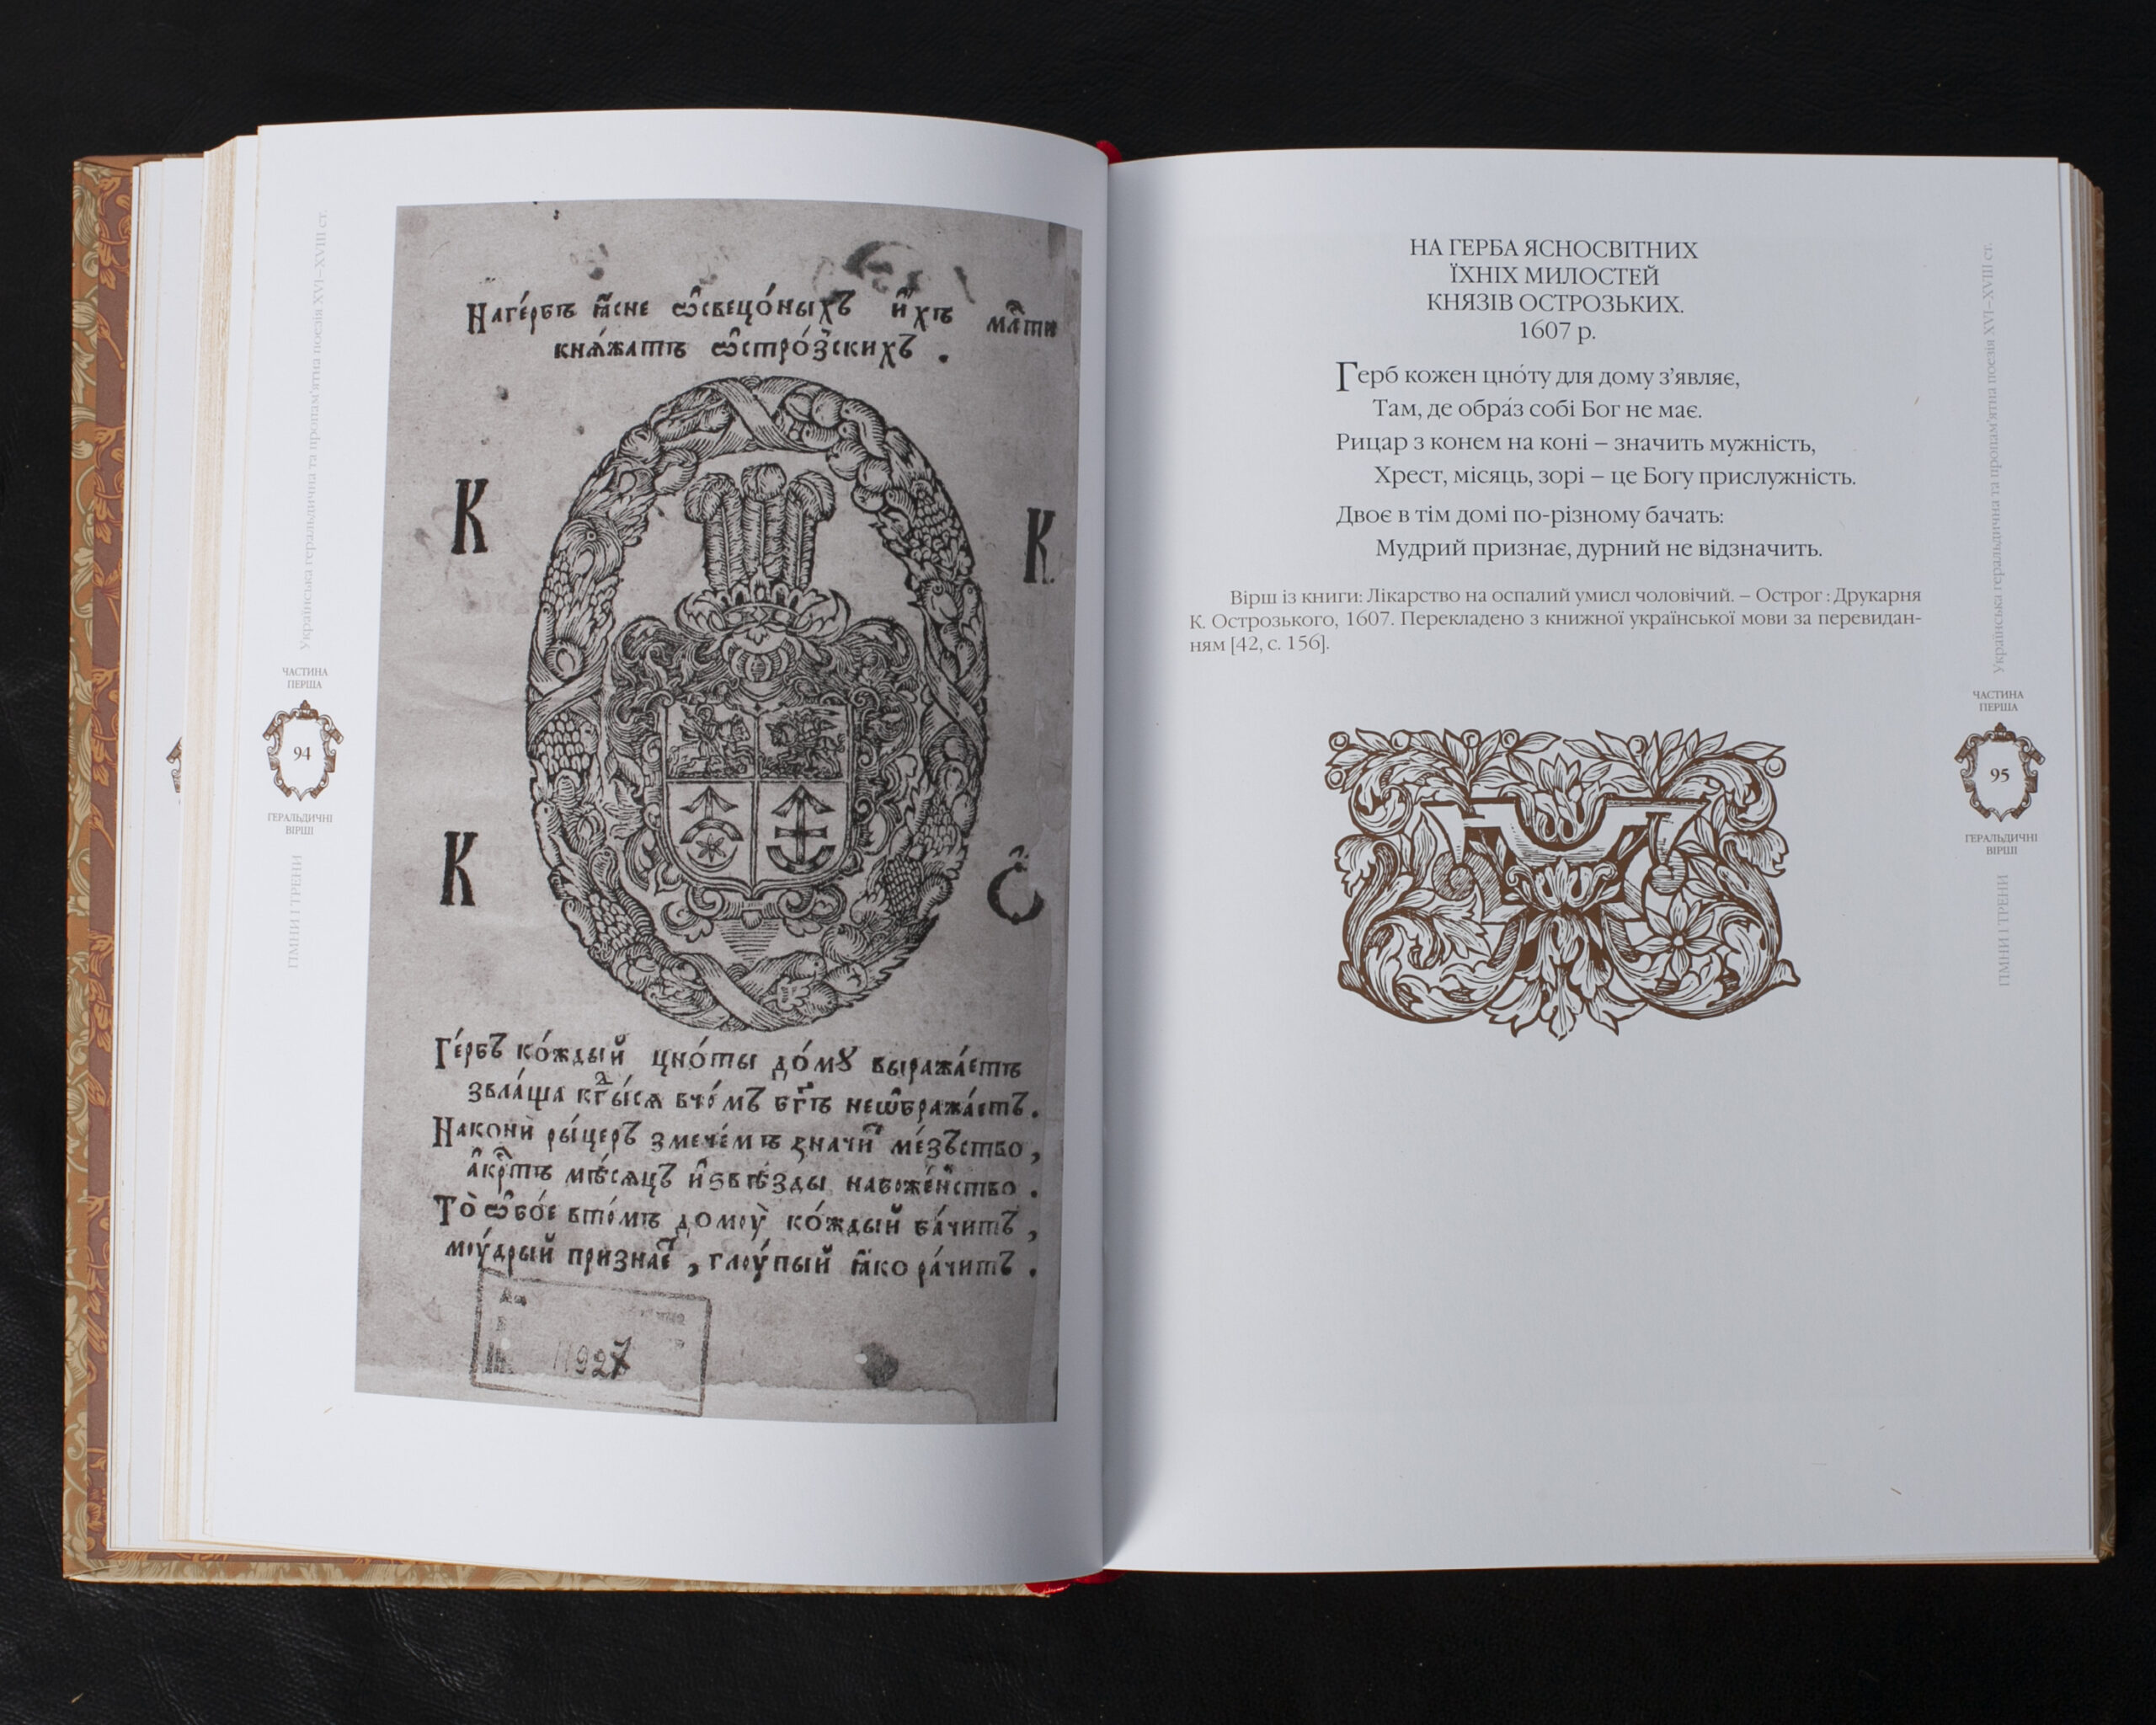 Українська геральдична та пропам'ятна поезія XVI–XVIII ст.
ЧАСТИНА
ПЕРША
94
ГЕРАЛЬДИЧНІ
ВІРШІ
ГІМНИ І ТРЕНИ
На ге́рбъ ꙗ҆́сне ѡ҆свецо́ныхъ и҆́хъ мл҃ти
кнѧ́жатъ ѡ҆стро́зскихъ .
К К
К О
Ге́рбъ ко́ждый цно́ты до́мꙋ выража́етъ
звла́ща кгды́сѧ вчо́мъ бг҃ъ неѡ҆бража́етъ.
На кони ры́церъ змече́мъ значи́т ме́зъство,
а҆ кр҃тъ мѣ́сѧцъ и҆ ѕвѣ́зды набоже́нство .
То̀ ѡ҆бо́е вто́мъ домоу̀ ко́ждый ба́читъ ,
моу́дрый признае́т , глоу́пый ꙗ҆́ко ра́читъ .
11927
НА ГЕРБА ЯСНОСВІТНИХ
ЇХНІХ МИЛОСТЕЙ
КНЯЗІВ ОСТРОЗЬКИХ.
1607 р.
Герб кожен цно́ту для дому з’являє,
Там, де обра́з собі Бог не має.
Рицар з конем на коні – значить мужність,
Хрест, місяць, зорі – це Богу прислужність.
Двоє в тім домі по-різному бачать:
Мудрий признає, дурний не відзначить.
Вірш із книги: Лікарство на оспалий умисл чоловічий. – Острог : Друкарня
К. Острозького, 1607. Перекладено з книжної української мови за перевидан-
ням [42, с. 156].
Українська геральдична та пропам'ятна поезія XVI–XVIII ст.
ЧАСТИНА
ПЕРША
95
ГЕРАЛЬДИЧНІ
ВІРШІ
ГІМНИ І ТРЕНИ